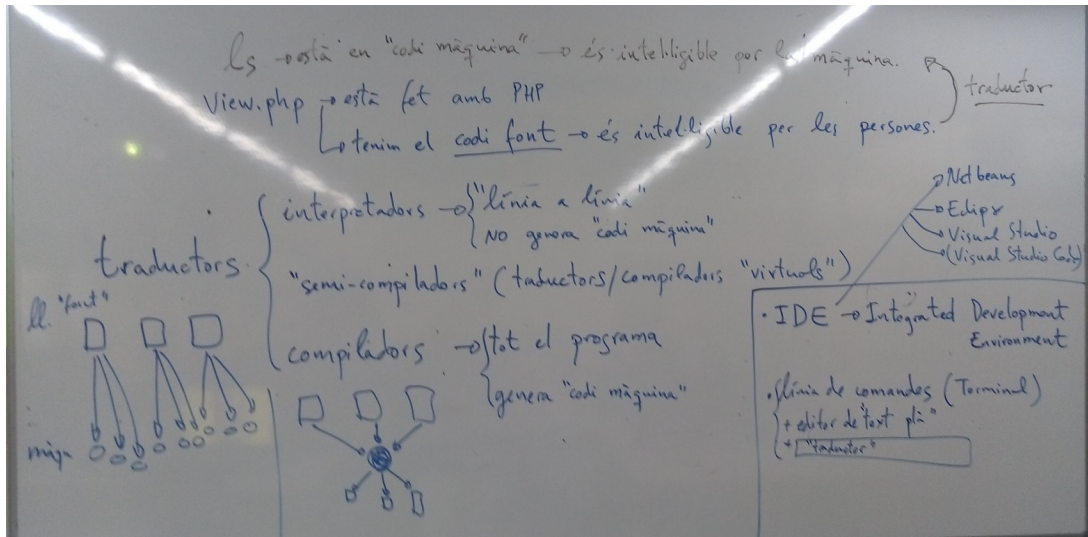 ls → està en "codi màquina" → és intel·ligible por la màquina.
View.php → està fet amb PHP
→ tenim el codi font → és intel·ligible per les persones.
traductor
traductors
interpretadors → "línia a línia"
NO genera "codi màquina"
"semi-compiladors" (traductors/compiladors "virtuals")
compiladors → tot el programa
genera "codi màquina"
ll. "font"
Netbeans
Eclipse
Visual Studio
(Visual Studio Code)
· IDE → Integrated Development
Environment
· línia de comandes (Terminal)
+ editor de "text plà"
+ "traductor"